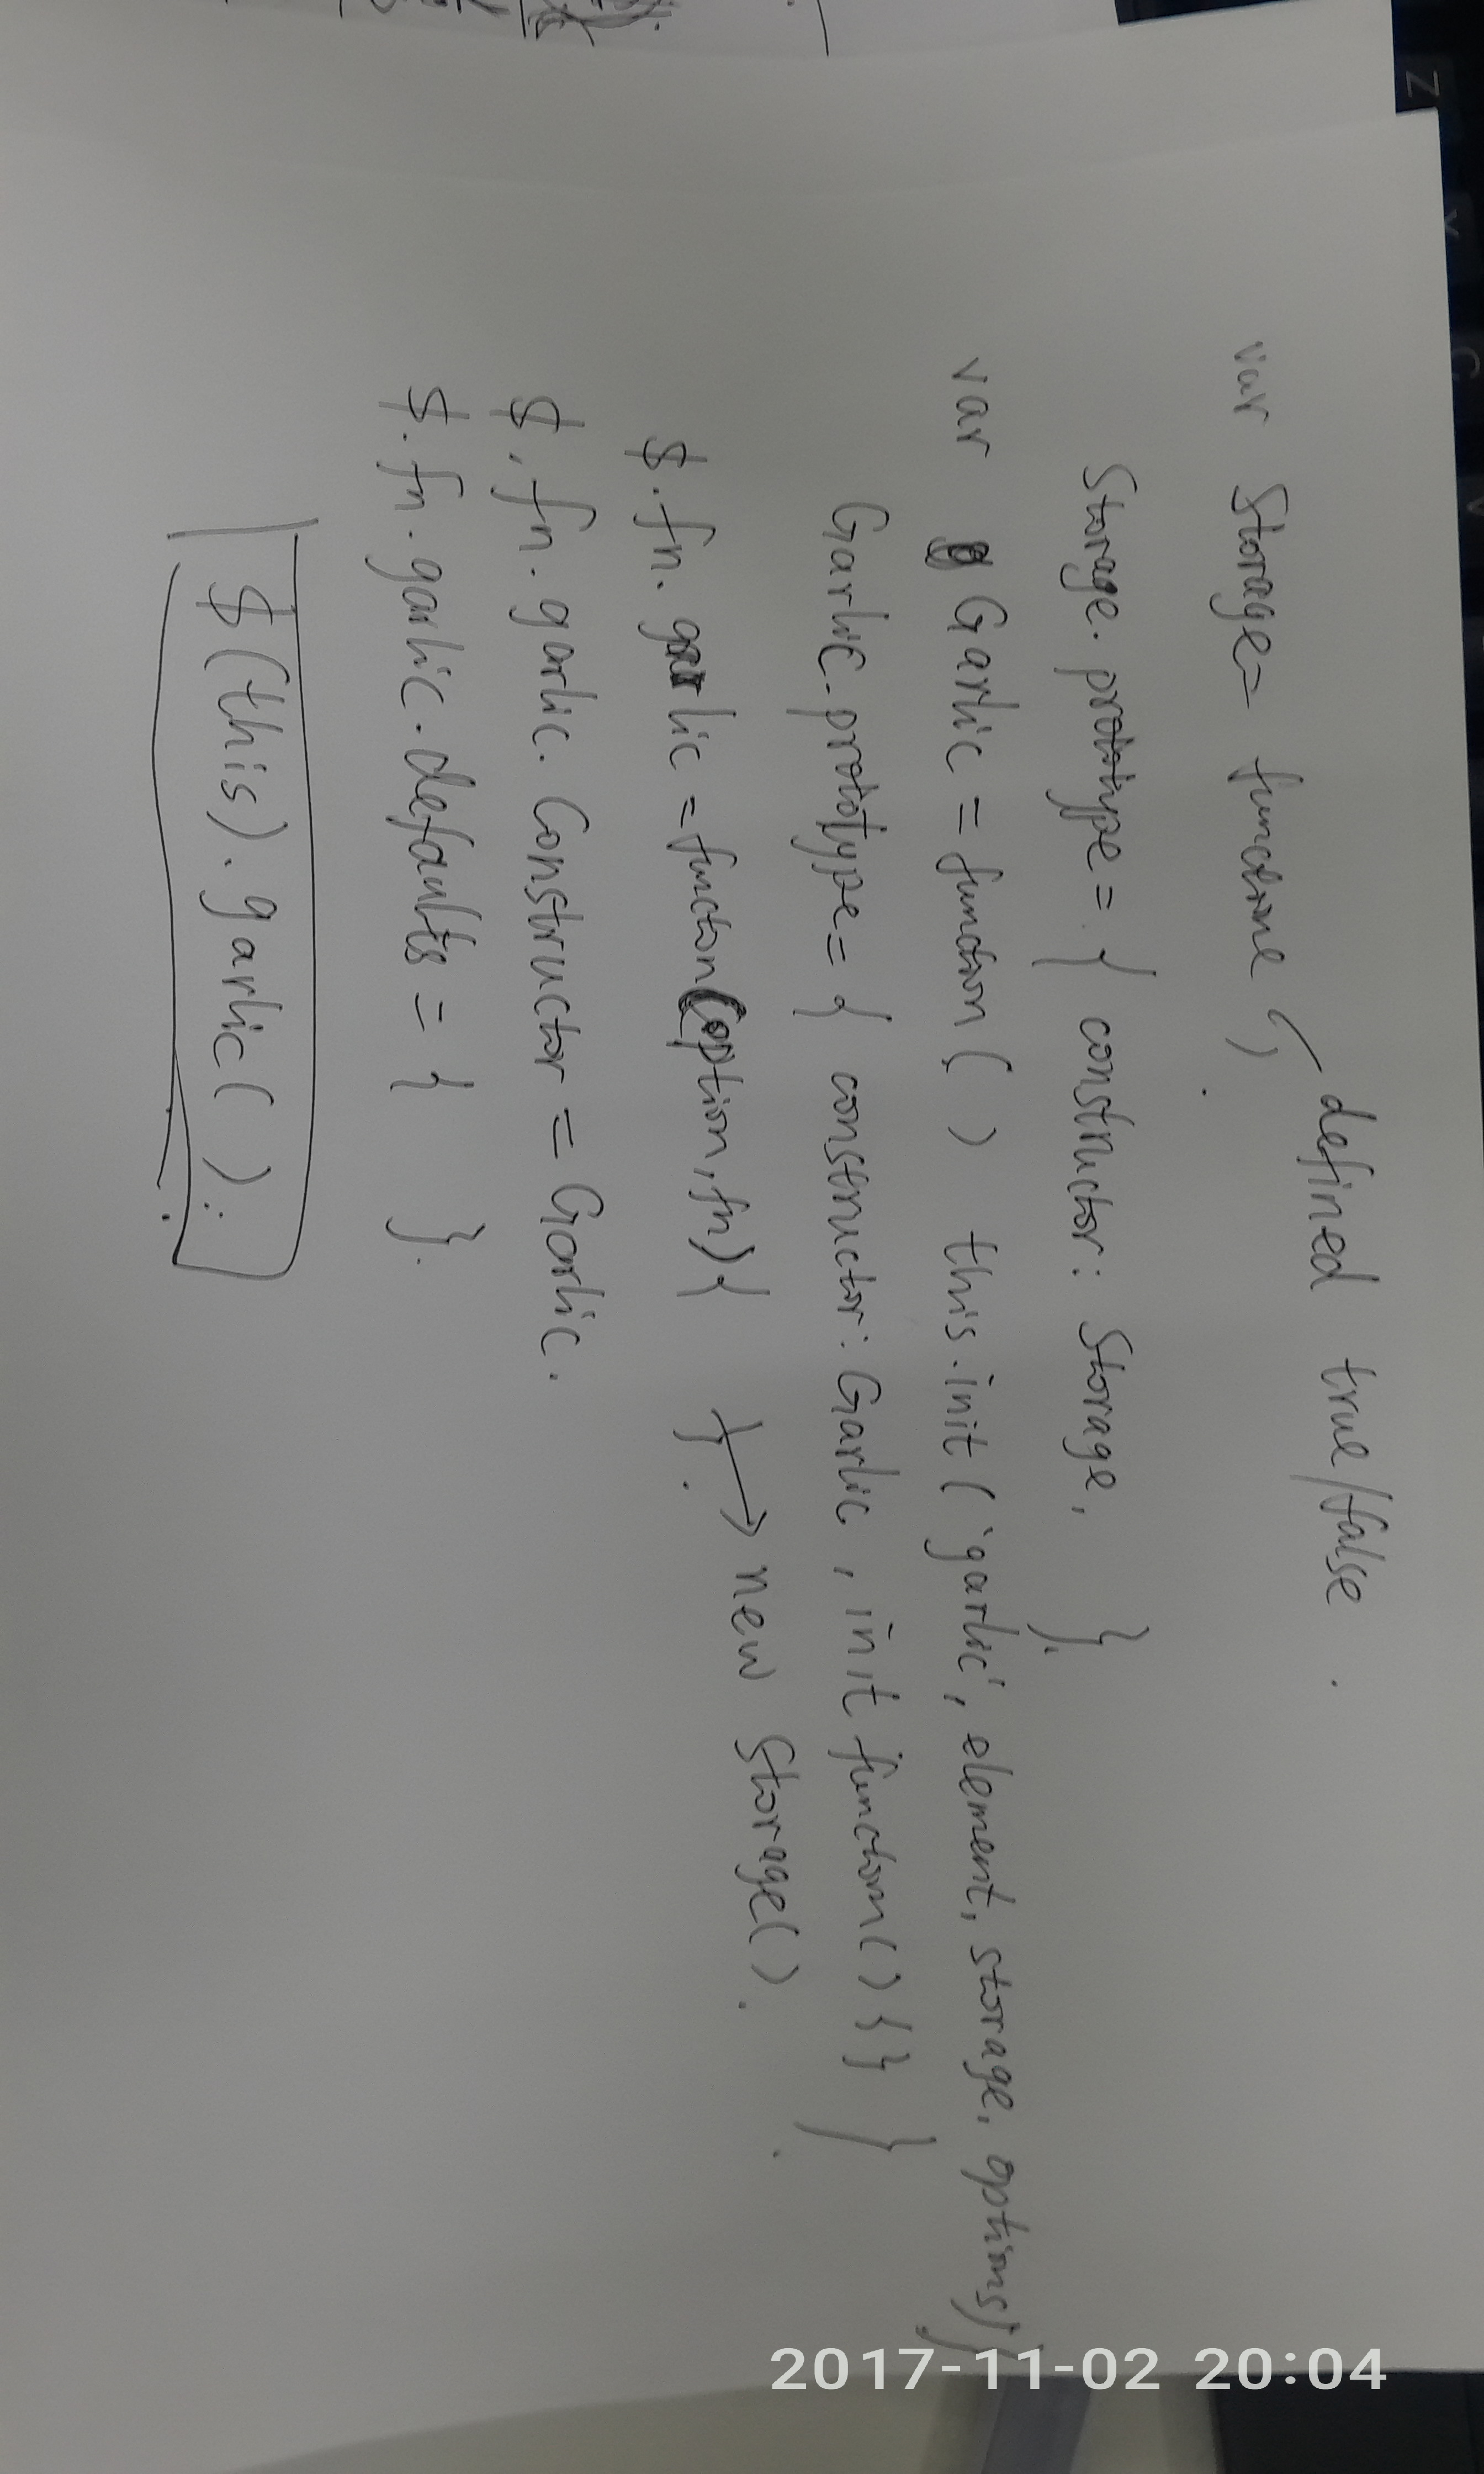 defined true/false.
var Storage = function ( ) .
Storage.prototype = { constructor: Storage, }.
var Garlic = function ( ) this.init ( 'garlic', element, storage, options) }
Garlic.prototype = { constructor: Garlic, init function () { } } .
$.fn.garlic = function (option, fn) { } . → new Storage().
$.fn.garlic.Constructor = Garlic.
$.fn.garlic.defaults = { }.
$(this).garlic( );
2017-11-02 20:04
Z